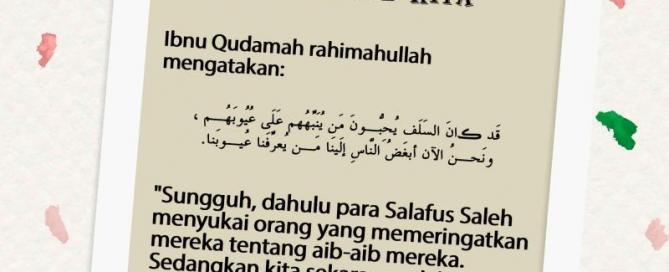 Ibnu Qudamah rahimahullah
mengatakan:
قَد كَانَ السَلَف يُحِبُّونَ مَن يُنَبِّهُهم عَلَى عُيُوبَهُم ،
وَنَحنُ الآن أبغَضُ النَّاسِ إلَينَا مَن يُعرِّفنَا عُيوبنَا.
"Sungguh, dahulu para Salafus Saleh
menyukai orang yang memeringatkan
mereka tentang aib-aib mereka.
Sedangkan kita